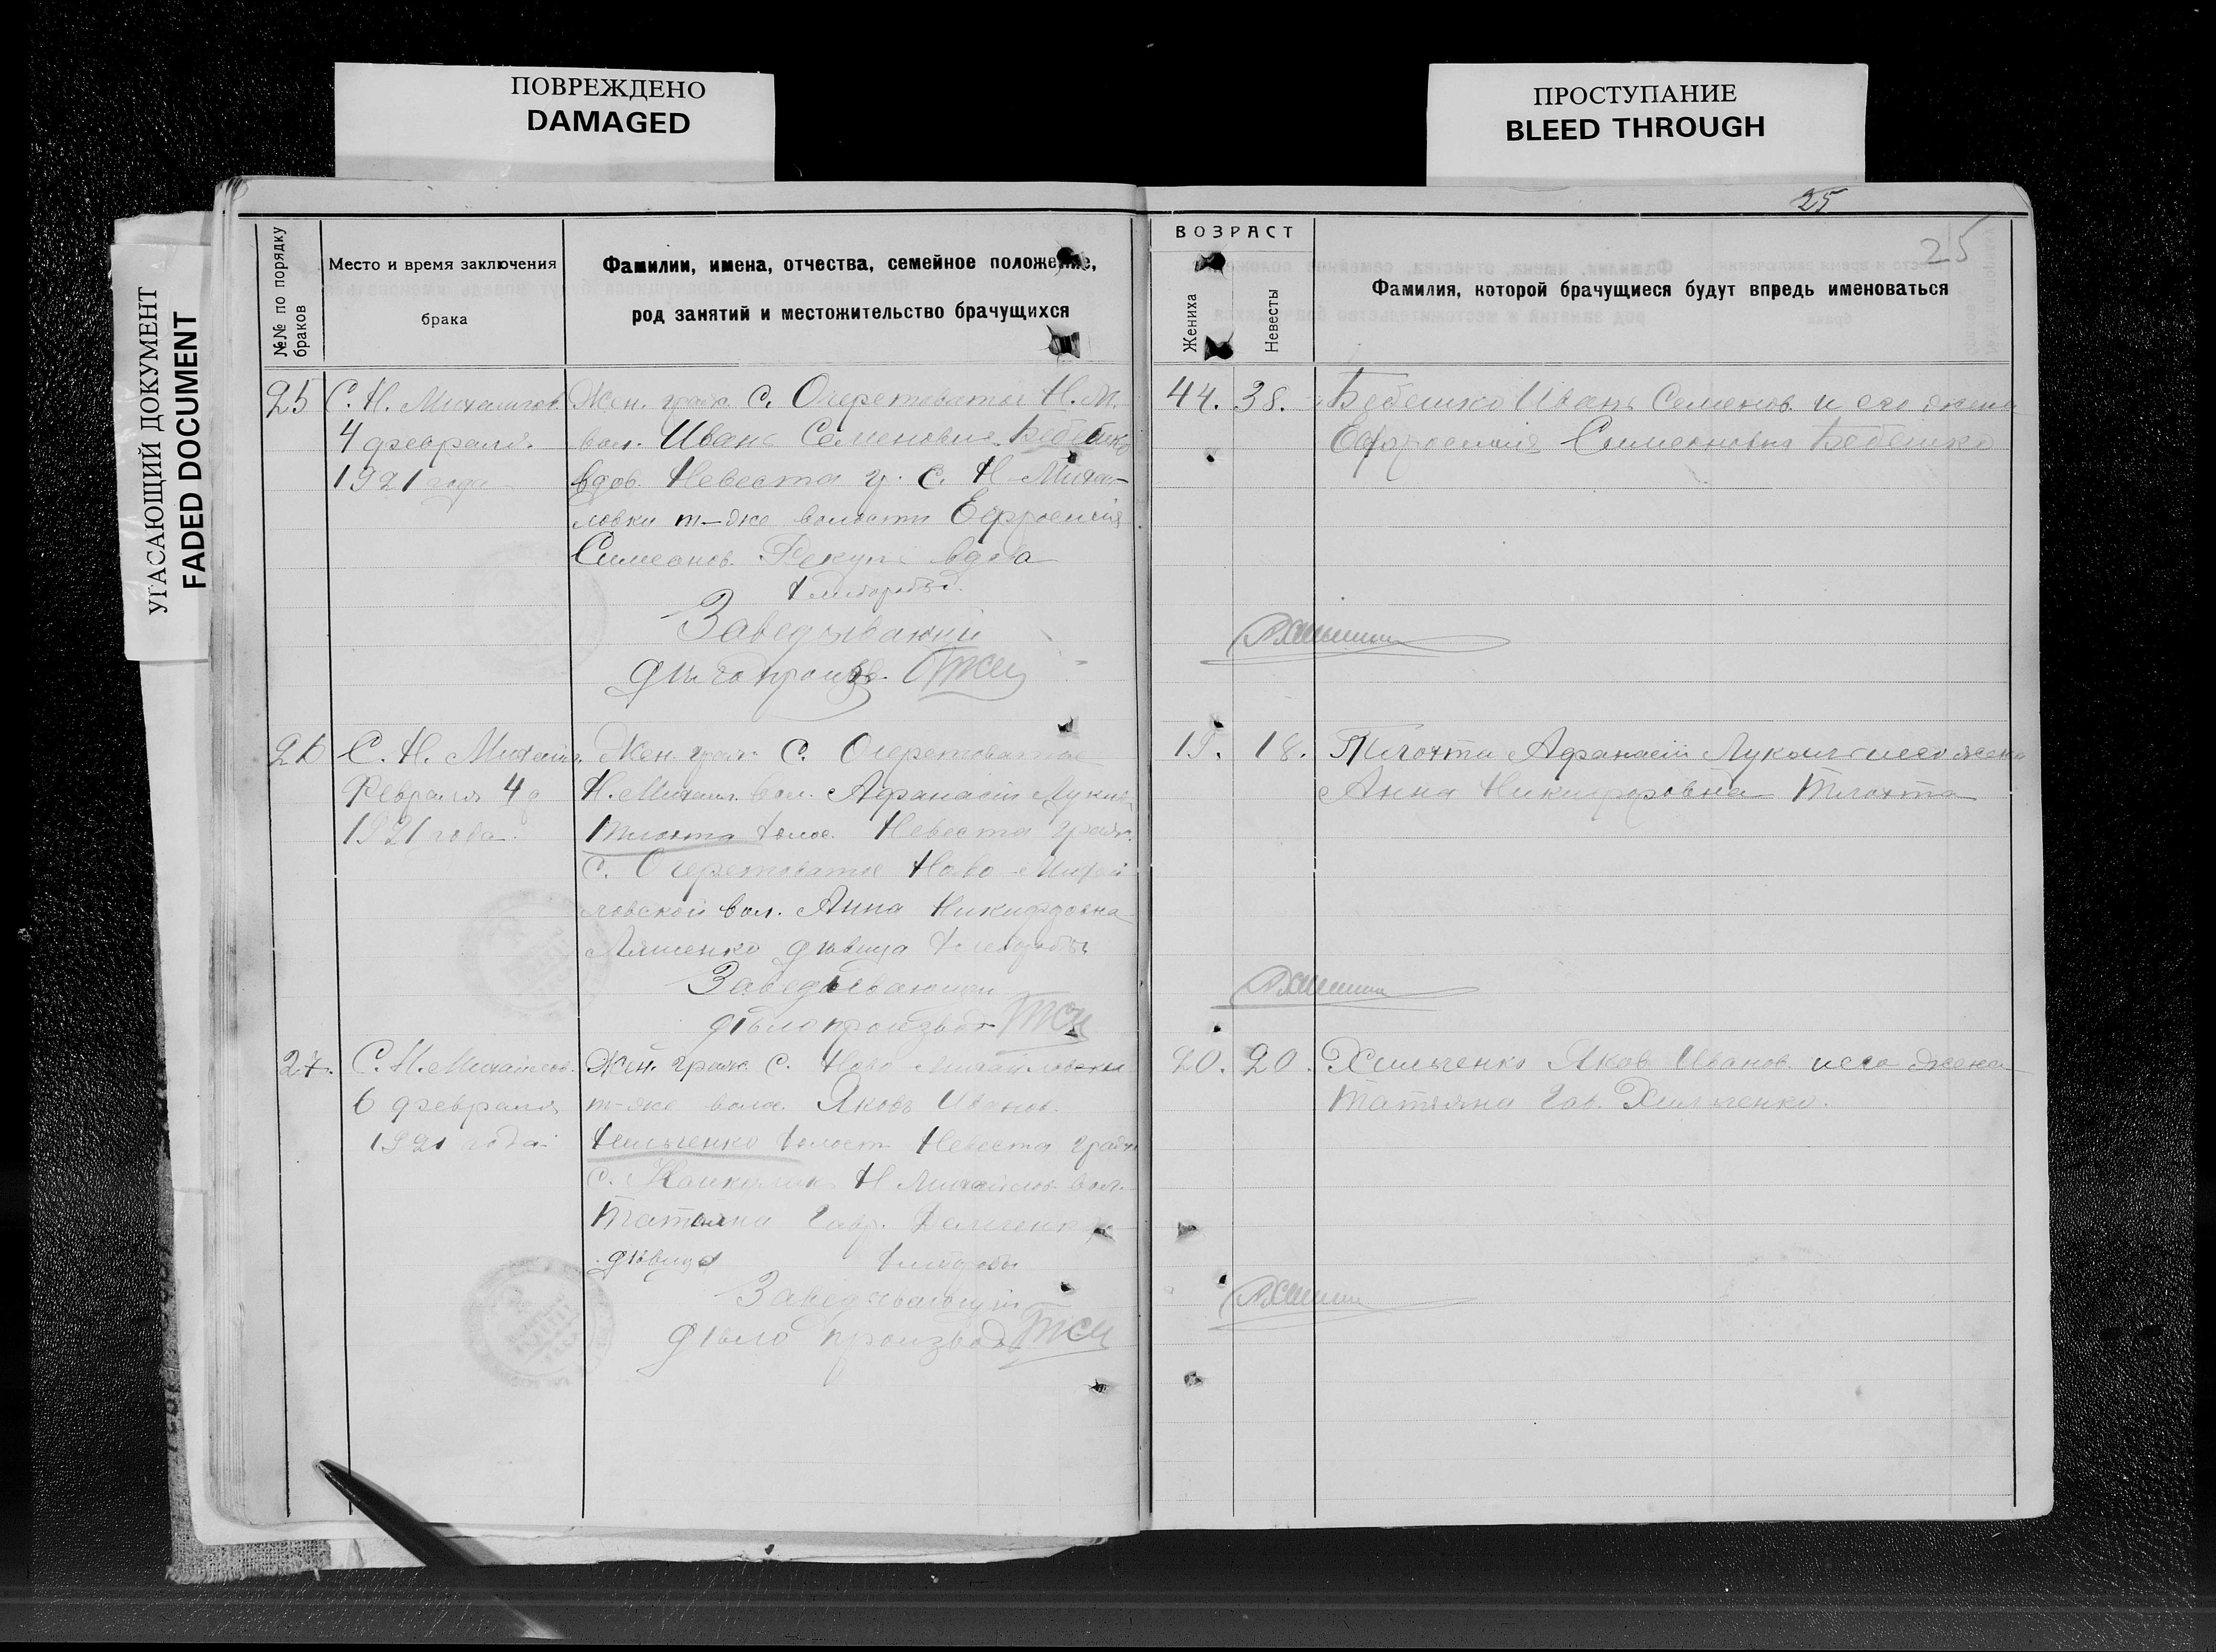 ПОВРЕЖДЕНО
DAMAGED
ПРОСТУПАНИЕ
BLEED THROUGH
УГАСАЮЩИЙ ДОКУМЕНТ
FADED DOCUMENT
25
25
№№ по порядку браков
Место и время заключения
брака
Фамилии, имена, отчества, семейное положение,
род занятий и местожительство брачущихся
ВОЗРАСТ
Жениха
Невесты
Фамилия, которой брачущиеся будут впредь именоваться
25
С. Н. Михайлов.
4 февраля
1921 года
Жен. граж. с. Очеретоватое Н. М.
вол. Иванъ Семеновичъ Бебешко
вдов. Невеста г. с. Н-Михай-
ловки т-же волости Ефросинія
Симеонов. вдова
хлебороб.
Заведывающий
делопроизв.
44. 38.
Бебешко Иванъ Семенов. и его жена
Ефросинія Симеоновна Бебешко
26
С. Н. Михайл.
Февраля 4 д
1921 года.
Жен. граж. с. Очеретоватое
Н. Михайл. вол. Афанасій Лукич
Тлохта холос. Невеста граж.
с. Очеретоватое Ново-Михай
ловской вол. Анна Никифоровна
Ляшенко дѣвица хлебороб
Заведывающий
дѣлопроизвод
19. 18.
Тлохта Афанасій и его жена
Анна Никифоровна Тлохта
27.
С. Н. Михайлов.
6 февраля
1921 года
Жен. граж. с. Ново-Михайловки
т-же волос. Яковъ Иванов.
Хильченко холост Невеста граж
с. Н Михайлов. вол.
Татьяна Гавр.
дѣвица хлебороб
Заведывающій
дѣлопроизвод
20. 20.
Хильченко Яков Иванов. и его жена
Татьяна Гав. Хильченко.